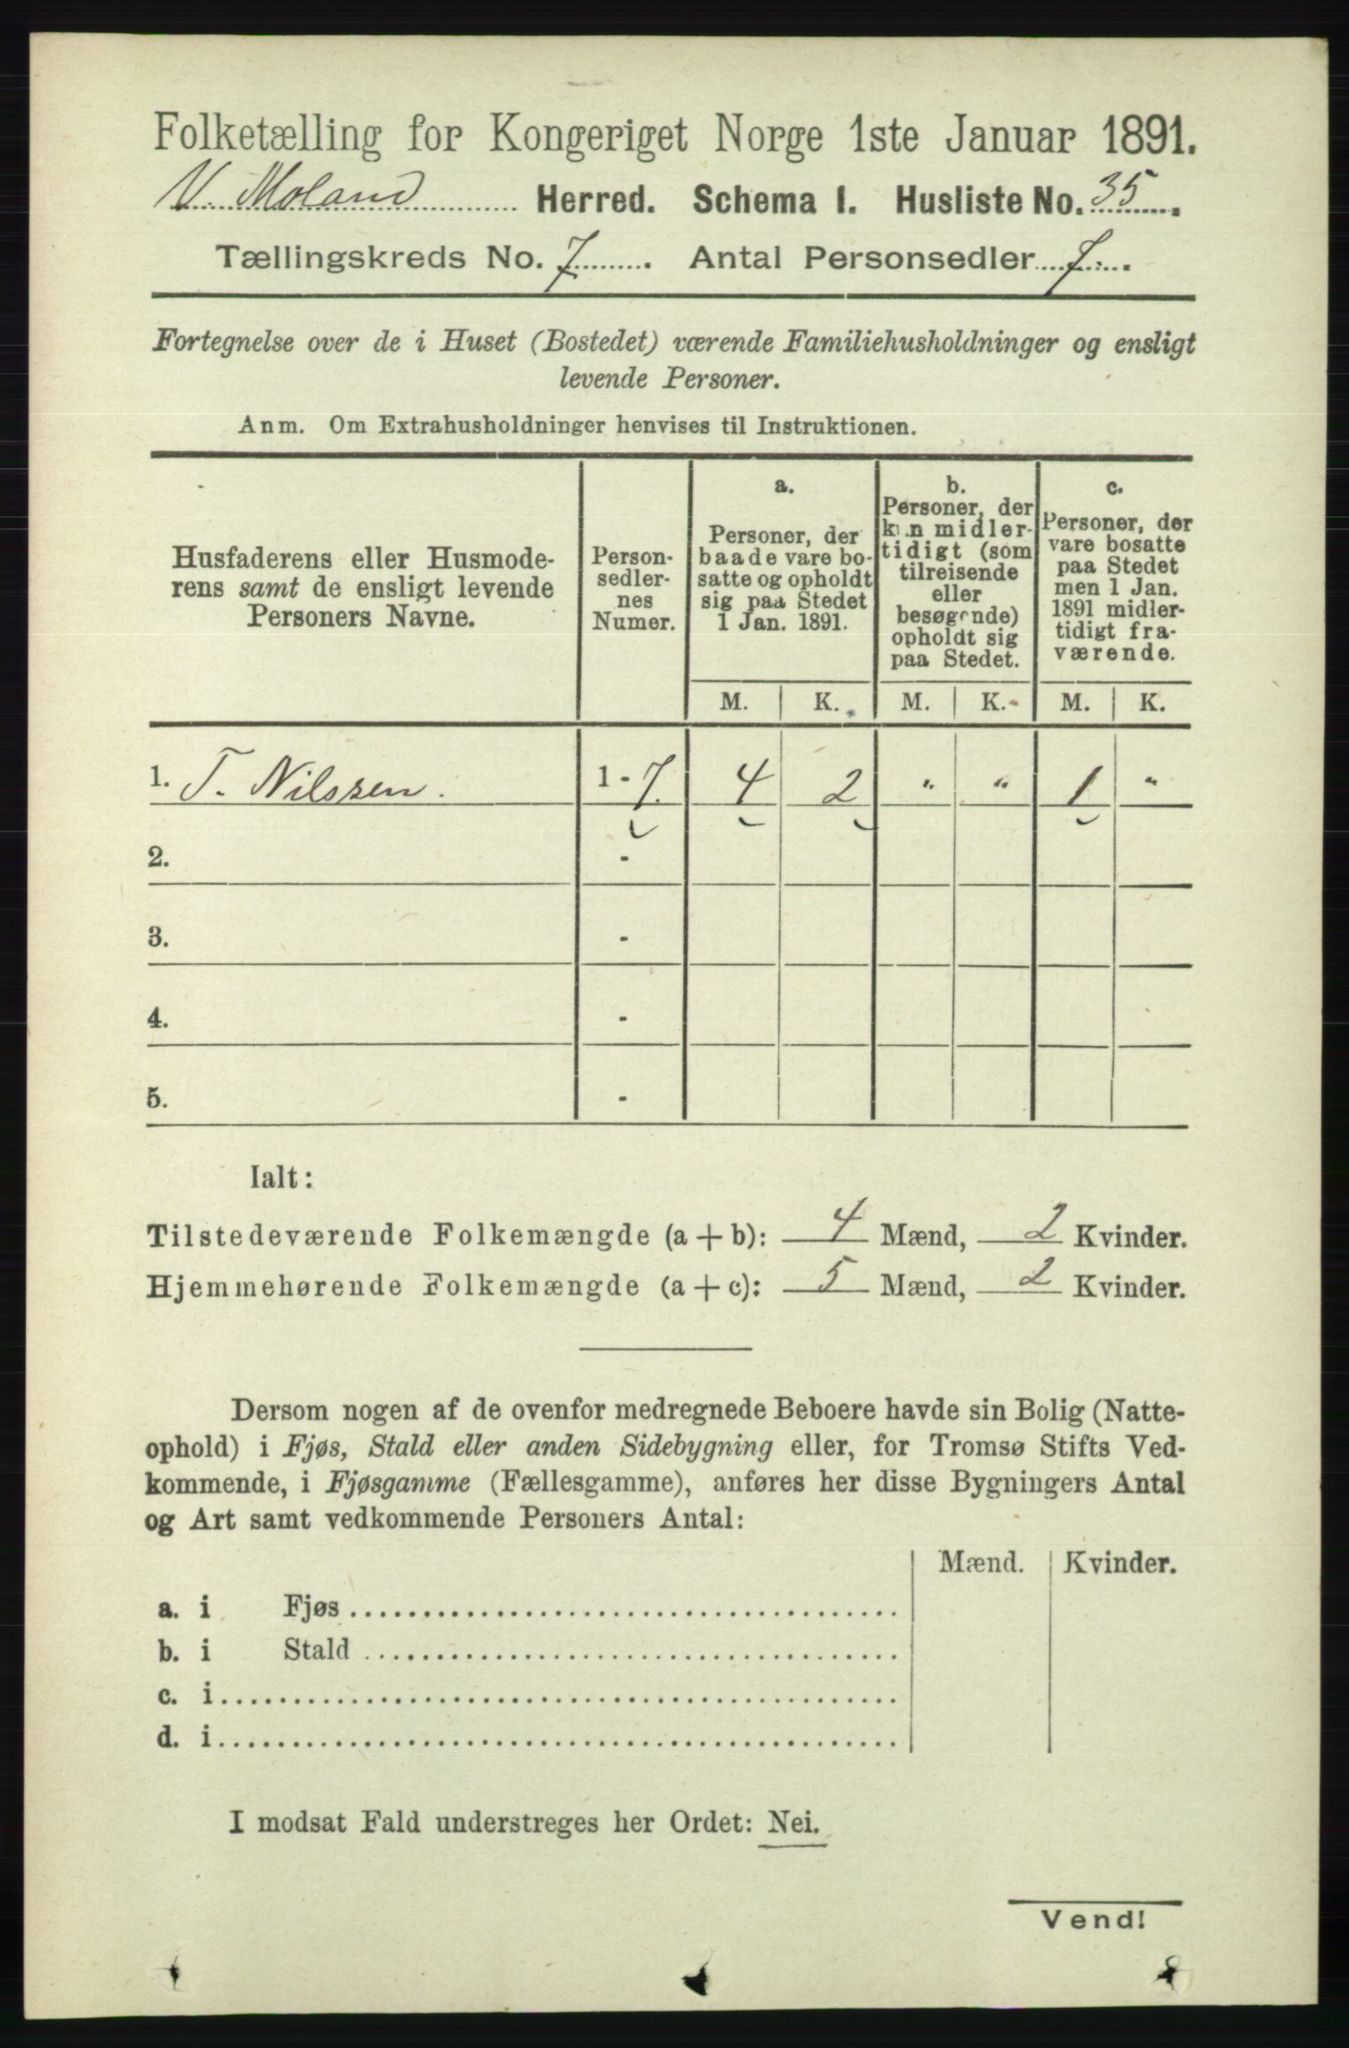 Folketælling for Kongeriget Norge 1ste Januar 1891.
V. Moland Herred. Schema I. Husliste No. 35.
Tællingskreds No. 7. Antal Personsedler 7.
Fortegnelse over de i Huset (Bostedet) værende Familiehusholdninger og ensligt
levende Personer.
Anm. Om Extrahusholdninger henvises til Instruktionen.
Husfaderens eller Husmode-
rens samt de ensligt levende
Personers Navne.
Person-
sedler-
nes
Numer.
a.
Personer, der
baade vare bo-
satte og opholdt
sig paa Stedet
1 Jan. 1891.
b.
Personer, der
kun midler-
tidigt (som
tilreisende
eller
besøgende)
opholdt sig
paa Stedet.
c.
Personer, der
vare bosatte
paa Stedet
men 1 Jan.
1891 midler-
tidigt fra-
værende.
M. K. M. K. M. K.
1. T. Nilssen. 1 - 7. 4 2 " " 1 "
2. -
3. -
4. -
5. -
Ialt:
Tilstedeværende Folkemængde (a + b): 4 Mænd, 2 Kvinder.
Hjemmehørende Folkemængde (a + c): 5 Mænd, 2 Kvinder.
Dersom nogen af de ovenfor medregnede Beboere havde sin Bolig (Natte-
ophold) i Fjøs, Stald eller anden Sidebygning eller, for Tromsø Stifts Ved-
kommende, i Fjøsgamme (Fællesgamme), anføres her disse Bygningers Antal
og Art samt vedkommende Personers Antal:
Mænd. Kvinder.
a. i Fjøs
b. i Stald
c. i
d. i
I modsat Fald understreges her Ordet: Nei.
Vend!